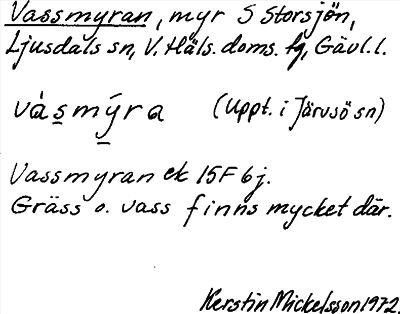 Vassmyran, myr S Storsjön,
Ljusdals sn, V. Häls. doms. fg, Gävl. l.
vàs̲m̲ýra (Uppt. i Järvsö sn)
Vassmyran ek 15F 6j.
Gräss o. vass finns mycket där.
Kerstin Mickelsson 1972.